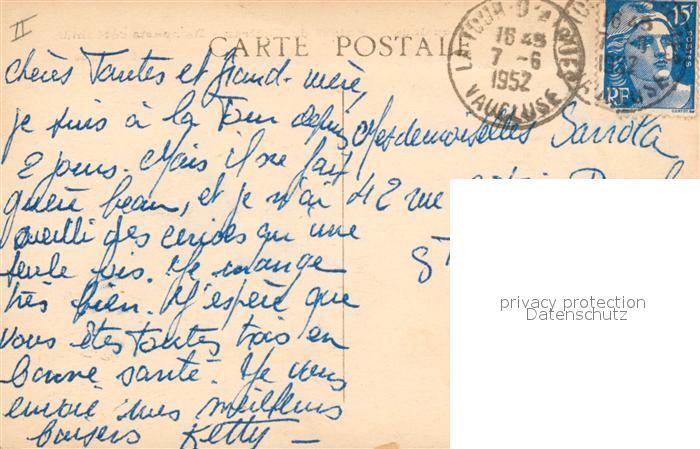 II
CARTE POSTALE
LA TOUR D'AIGUES
16 45
7 -6
1952
VAUCLUSE
15F
POSTES
RF
chères Tantes et Grand-mère,
je suis à la Tour depuis
2 jours. Mais il ne fait
guère beau, et je n'ai
cueilli des cerises qu'une
seule fois. Je mange
très bien. J'espère que
vous êtes toutes trois en
bonne santé. Je vous
envoie mes meilleurs
baisers Ketty —
Mesdemoiselles
42 rue
ST
privacy protection
Datenschutz